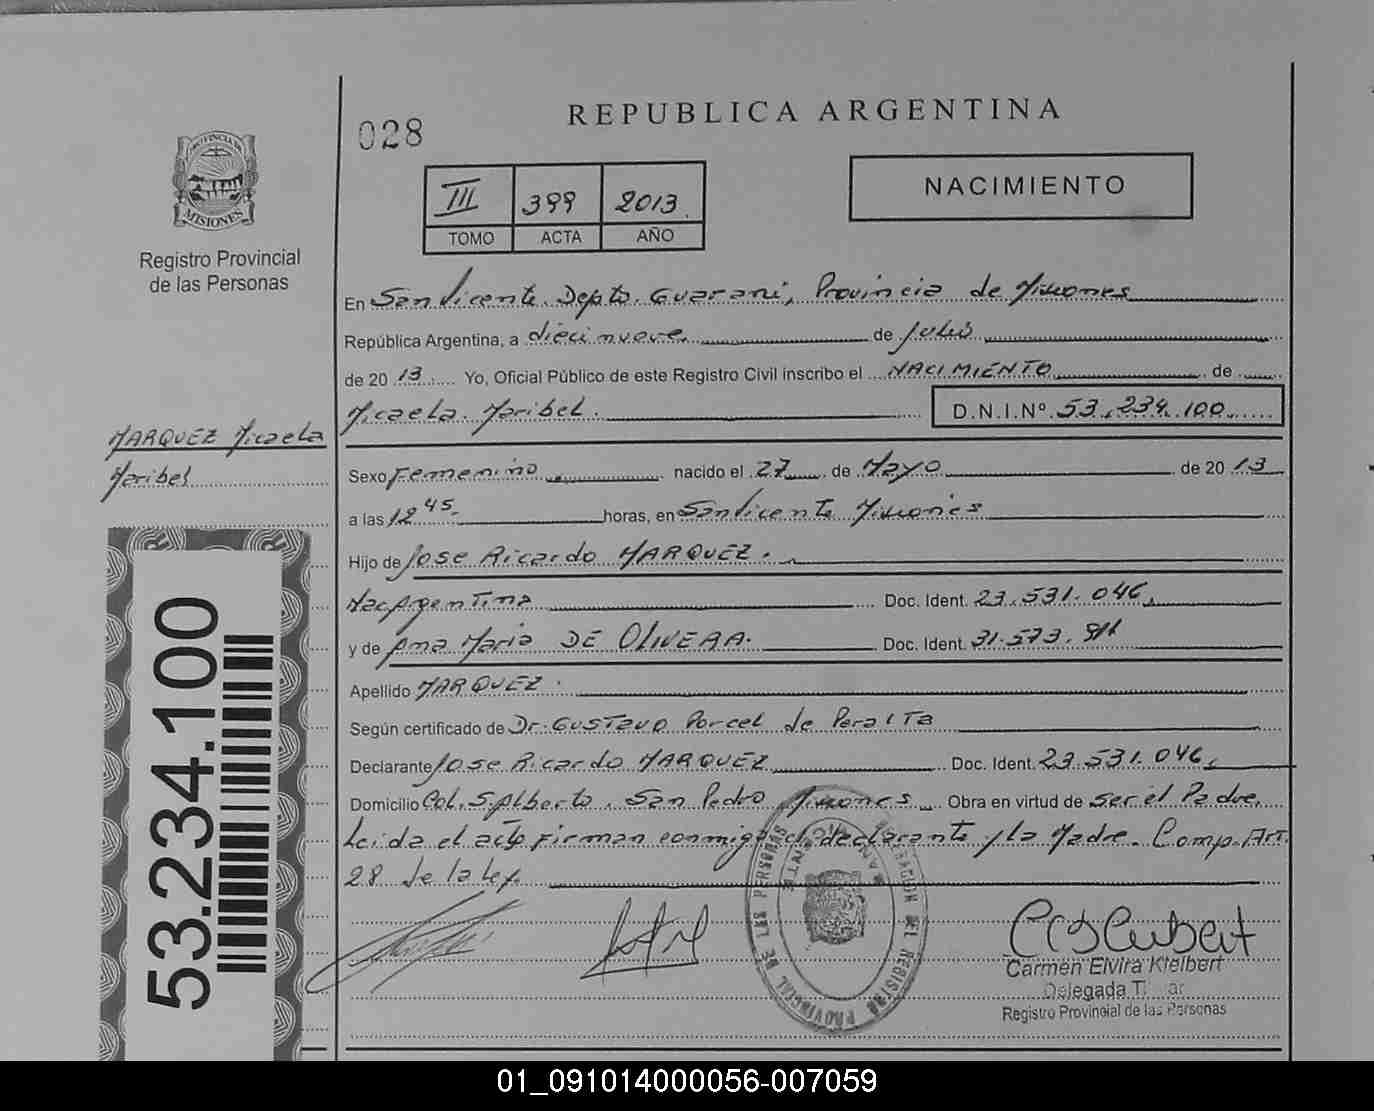 REPUBLICA ARGENTINA
028
III 399 2013
TOMO ACTA AÑO
NACIMIENTO
PROVINCIA DE
MISIONES
Registro Provincial
de las Personas
En San Vicente Depto. Guarani, Provincia de Misiones
República Argentina, a diecinueve de Julio
de 20 13 Yo, Oficial Público de este Registro Civil inscribo el NACIMIENTO de
Micaela Maribel. D.N.I.Nº 53.234.100
MARQUEZ Micaela
Maribel
Sexo Femenino nacido el 27 de Mayo de 20 13
a las 12 45 horas, en San Vicente Misiones
Hijo de Jose Ricardo MARQUEZ.
Nac Argentina Doc. Ident. 23.531.046
y de Ana Maria DE OLIVERA. Doc. Ident. 31.573.
Apellido MARQUEZ.
Según certificado de Dr. Gustavo Porcel de Peralta
Declarante Jose Ricardo MARQUEZ Doc. Ident. 23.531.046
Domicilio Col. S. Alberto. San Pedro Misiones Obra en virtud de ser el Padre.
Leida el acta firman conmigo el declarante y la Madre. Comp. Art.
28 de la ley.
53.234.100
PROVINCIAL DE LAS PERSONAS
DEL REGISTRO
SAN VICENTE
Carmen Elvira Kleibert
Delegada
Registro Provincial de las Personas
01_091014000056-007059